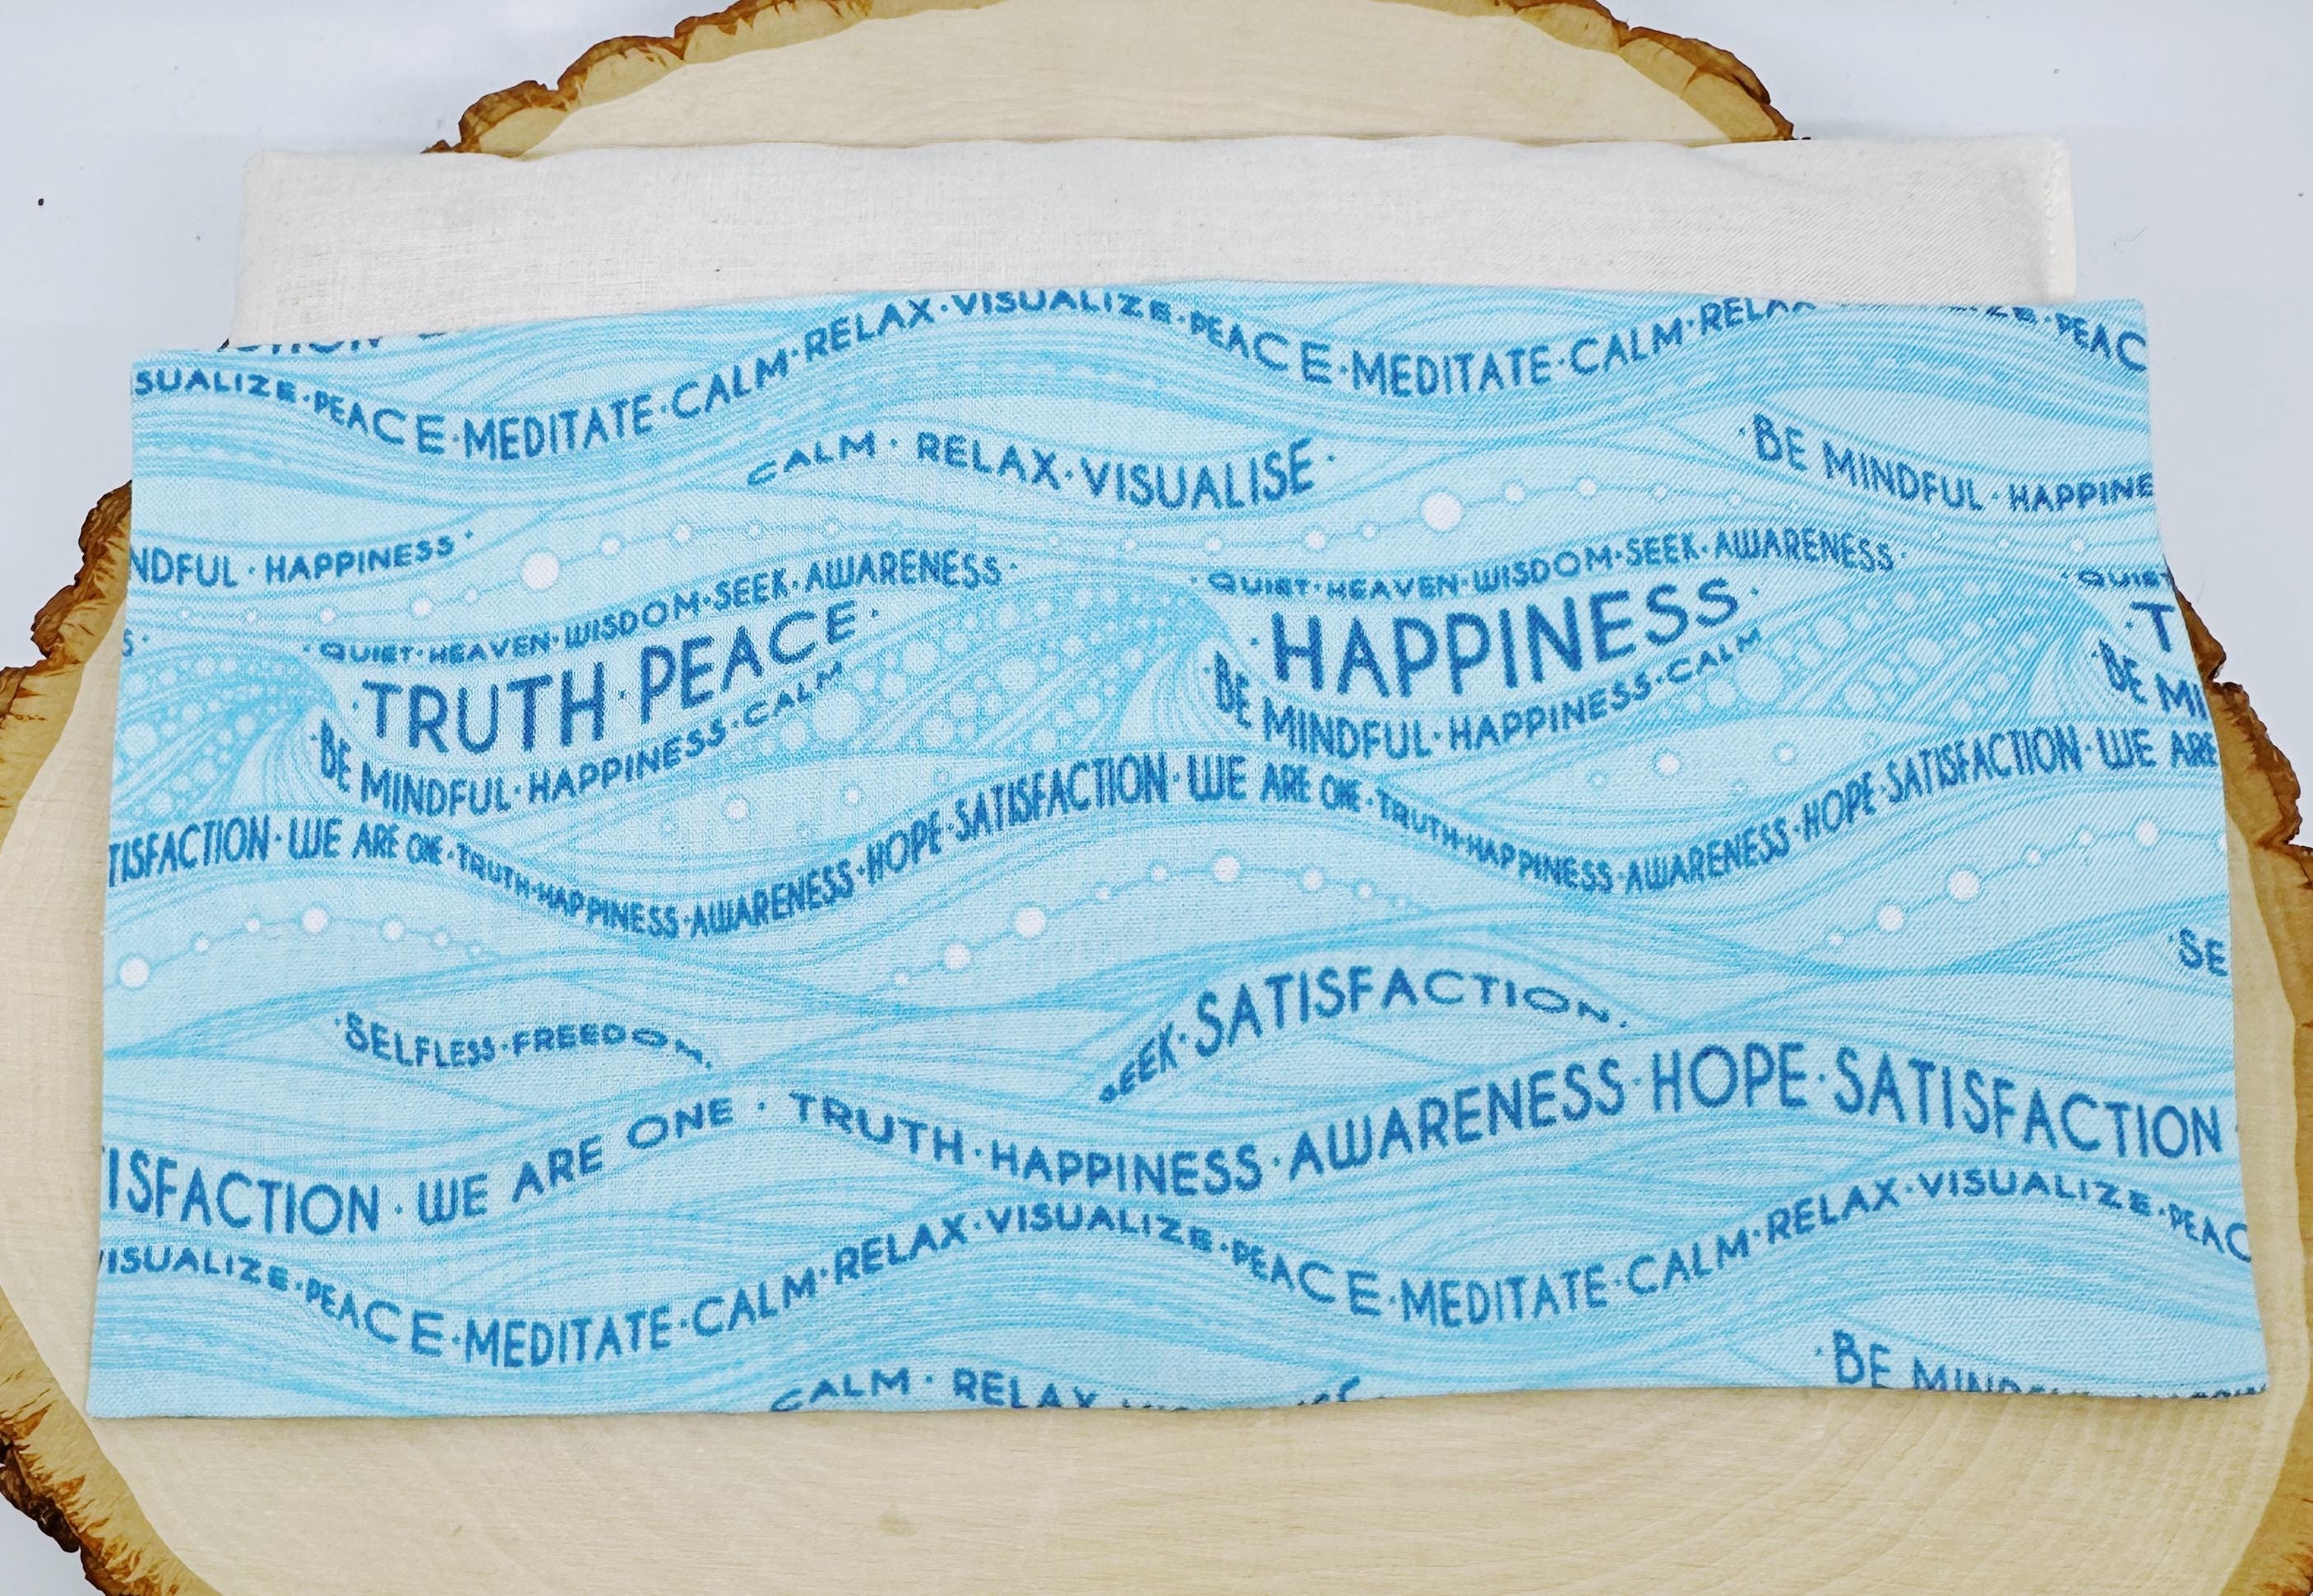 SUALIZE·PEACE·MEDITATE·CALM·RELAX·VISUALIZE·PEACE·MEDITATE·CALM·RELAX PEAC
CALM · RELAX·VISUALISE·
·BE MINDFUL·HAPPINE
NDFUL·HAPPINESS·
·QUIET·HEAVEN·WISDOM·SEEK·AWARENESS·
·QUIET·HEAVEN·WISDOM·SEEK·AWARENESS·
·QUIET
S·
·TRUTH·PEACE·
·HAPPINESS·
·T
·BE MINDFUL·HAPPINESS·CALM
·BE MINDFUL·HAPPINESS·CALM
·BE MI
TISFACTION·WE ARE ONE·TRUTH·HAPPINESS·AWARENESS·HOPE·SATISFACTION·WE ARE ONE·TRUTH·HAPPINESS·AWARENESS·HOPE·SATISFACTION·WE ARE
·SELFLESS·FREEDOM·
SEEK·SATISFACTION·
·SE
ISFACTION·WE ARE ONE · TRUTH·HAPPINESS·AWARENESS·HOPE·SATISFACTION·
VISUALIZE·PEACE·MEDITATE·CALM·RELAX·VISUALIZE·PEACE·MEDITATE·CALM·RELAX·VISUALIZE·PEAC
CALM · RELAX
·BE MINDFUL